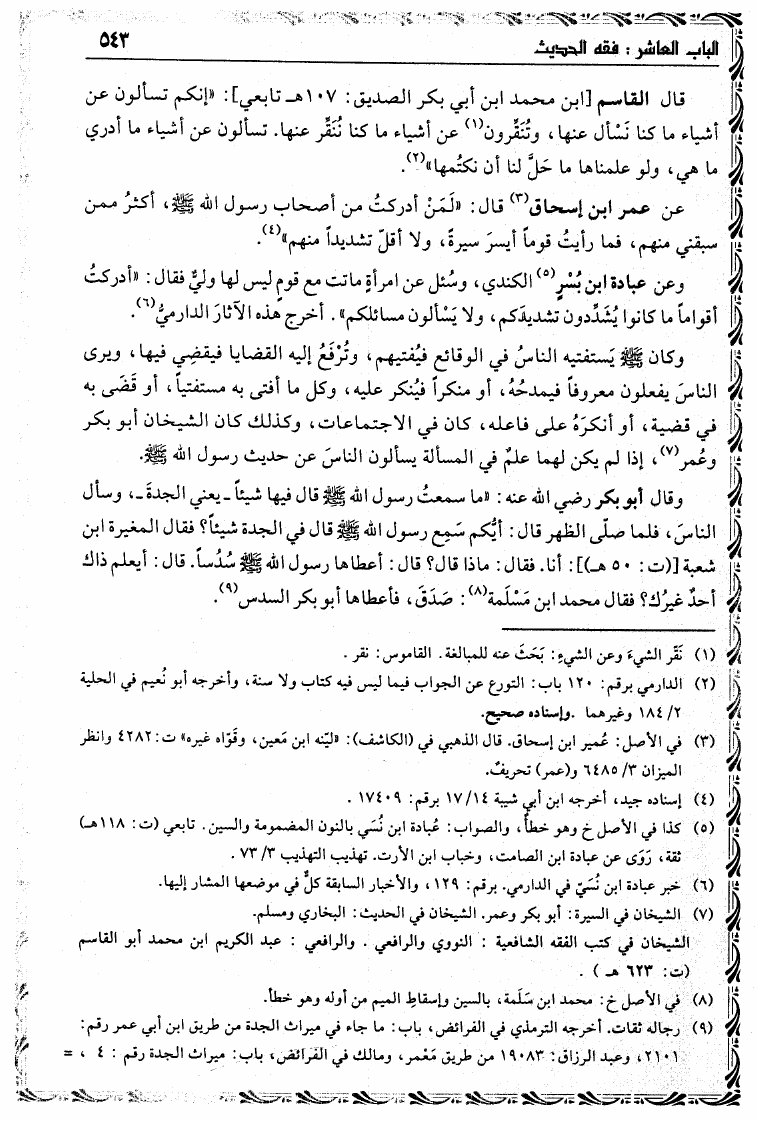 الباب العاشر : فقه الحديث
٥٤٣
قال القاسم [ابن محمد ابن أبي بكر الصديق: ١٠٧هـ تابعي]: «إنكم تسألون عن
أشياء ما كنا نَسْأل عنها، وتُنَقِّرون(١) عن أشياء ما كنا نُنَقِّر عنها. تسألون عن أشياء ما أدري
ما هي، ولو علمناها ما حَلَّ لنا أن نكتُمها»(٢).
عن عمر ابن إسحاق(٣) قال: «لَمَنْ أدركتُ من أصحاب رسول الله ﷺ، أكثرُ ممن
سبقني منهم، فما رأيتُ قوماً أيسرَ سيرةً، ولا أقلّ تشديداً منهم»(٤).
وعن عبادة ابن بُسْرٍ(٥) الكندي، وسُئل عن امرأةٍ ماتت مع قومٍ ليس لها وليٌّ فقال: «أدركتُ
أقواماً ما كانوا يُشَدِّدون تشديدَكم، ولا يَسْألون مسائلكم». أخرج هذه الآثارَ الدارميُّ(٦).
وكان ﷺ يَستفتيه الناسُ في الوقائع فيُفتيهم، وتُرْفَعُ إليه القضايا فيقضِي فيها، ويرى
الناسَ يفعلون معروفاً فيمدحُهُ، أو منكراً فيُنكر عليه، وكل ما أفتى به مستفتياً، أو قَضَى به
في قضية، أو أنكرَهُ على فاعله، كان في الاجتماعات، وكذلك كان الشيخان أبو بكر
وعُمر(٧)، إذا لم يكن لهما علمٌ في المسألة يسألون الناسَ عن حديث رسول الله ﷺ.
وقال أبو بكر رضي الله عنه: «ما سمعتُ رسول الله ﷺ قال فيها شيئاً ـ يعني الجدةَ ـ، وسأل
الناسَ، فلما صلّى الظهر قال: أيُّكم سَمِع رسول الله ﷺ قال في الجدة شيئاً؟ فقال المغيرة ابن
شعبة [(ت: ٥٠ هـ)]: أنا. فقال: ماذا قال؟ قال: أعطاها رسول الله ﷺ سُدُساً. قال: أيعلم ذاك
أحدٌ غيرُك؟ فقال محمد ابن مَسْلَمة(٨): صَدَقَ، فأعطاها أبو بكر السدس(٩).
(١) نَقّر الشيءَ وعن الشيءِ: بَحَثَ عنه للمبالغة. القاموس: نقر .
(٢) الدارمي برقم: ١٢٠ باب: التورع عن الجواب فيما ليس فيه كتاب ولا سنة، وأخرجه أبو نُعيم في الحلية
٢/ ١٨٤ وغيرهما .وإسناده صحيح.
(٣) في الأصل: عُمير ابن إسحاق. قال الذهبي في (الكاشف): «ليّنه ابن مَعين، وقَوّاه غيره» ت: ٤٢٨٢ وانظر
الميزان ٣/ ٦٤٨٥ و(عمر) تحريفٌ.
(٤) إسناده جيد، أخرجه ابن أبي شيبة ١٧/١٤ برقم: ١٧٤٠٩ .
(٥) كذا في الأصل خ وهو خطأٌ، والصواب: عُبادة ابن نُسَي بالنون المضمومة والسين. تابعي (ت: ١١٨هـ)
ثقة، رَوَى عن عبادة ابن الصامت، وخباب ابن الأرت. تهذيب التهذيب ٣/ ٧٣ .
(٦) خبر عبادة ابن نُسَيّ في الدارمي. برقم: ١٢٩، والأخبار السابقة كلٌّ في موضعها المشار إليها.
(٧) الشيخان في السيرة: أبو بكر وعمر. الشيخان في الحديث: البخاري ومسلم.
الشيخان في كتب الفقه الشافعية : النووي والرافعي . والرافعي : عبد الكريم ابن محمد أبو القاسم
(ت: ٦٢٣ هـ) .
(٨) في الأصل خ: محمد ابن سَلَمة، بالسين وإسقاطِ الميم من أوله وهو خطأ.
(٩) رجاله ثقات. أخرجه الترمذي في الفرائض، باب: ما جاء في ميراث الجدة من طريق ابن أبي عمر رقم:
٢١٠١، وعبد الرزاق: ١٩٠٨٣ من طريق مَعْمر، ومالك في الفرائض، باب: ميراث الجدة رقم : ٤ ، =